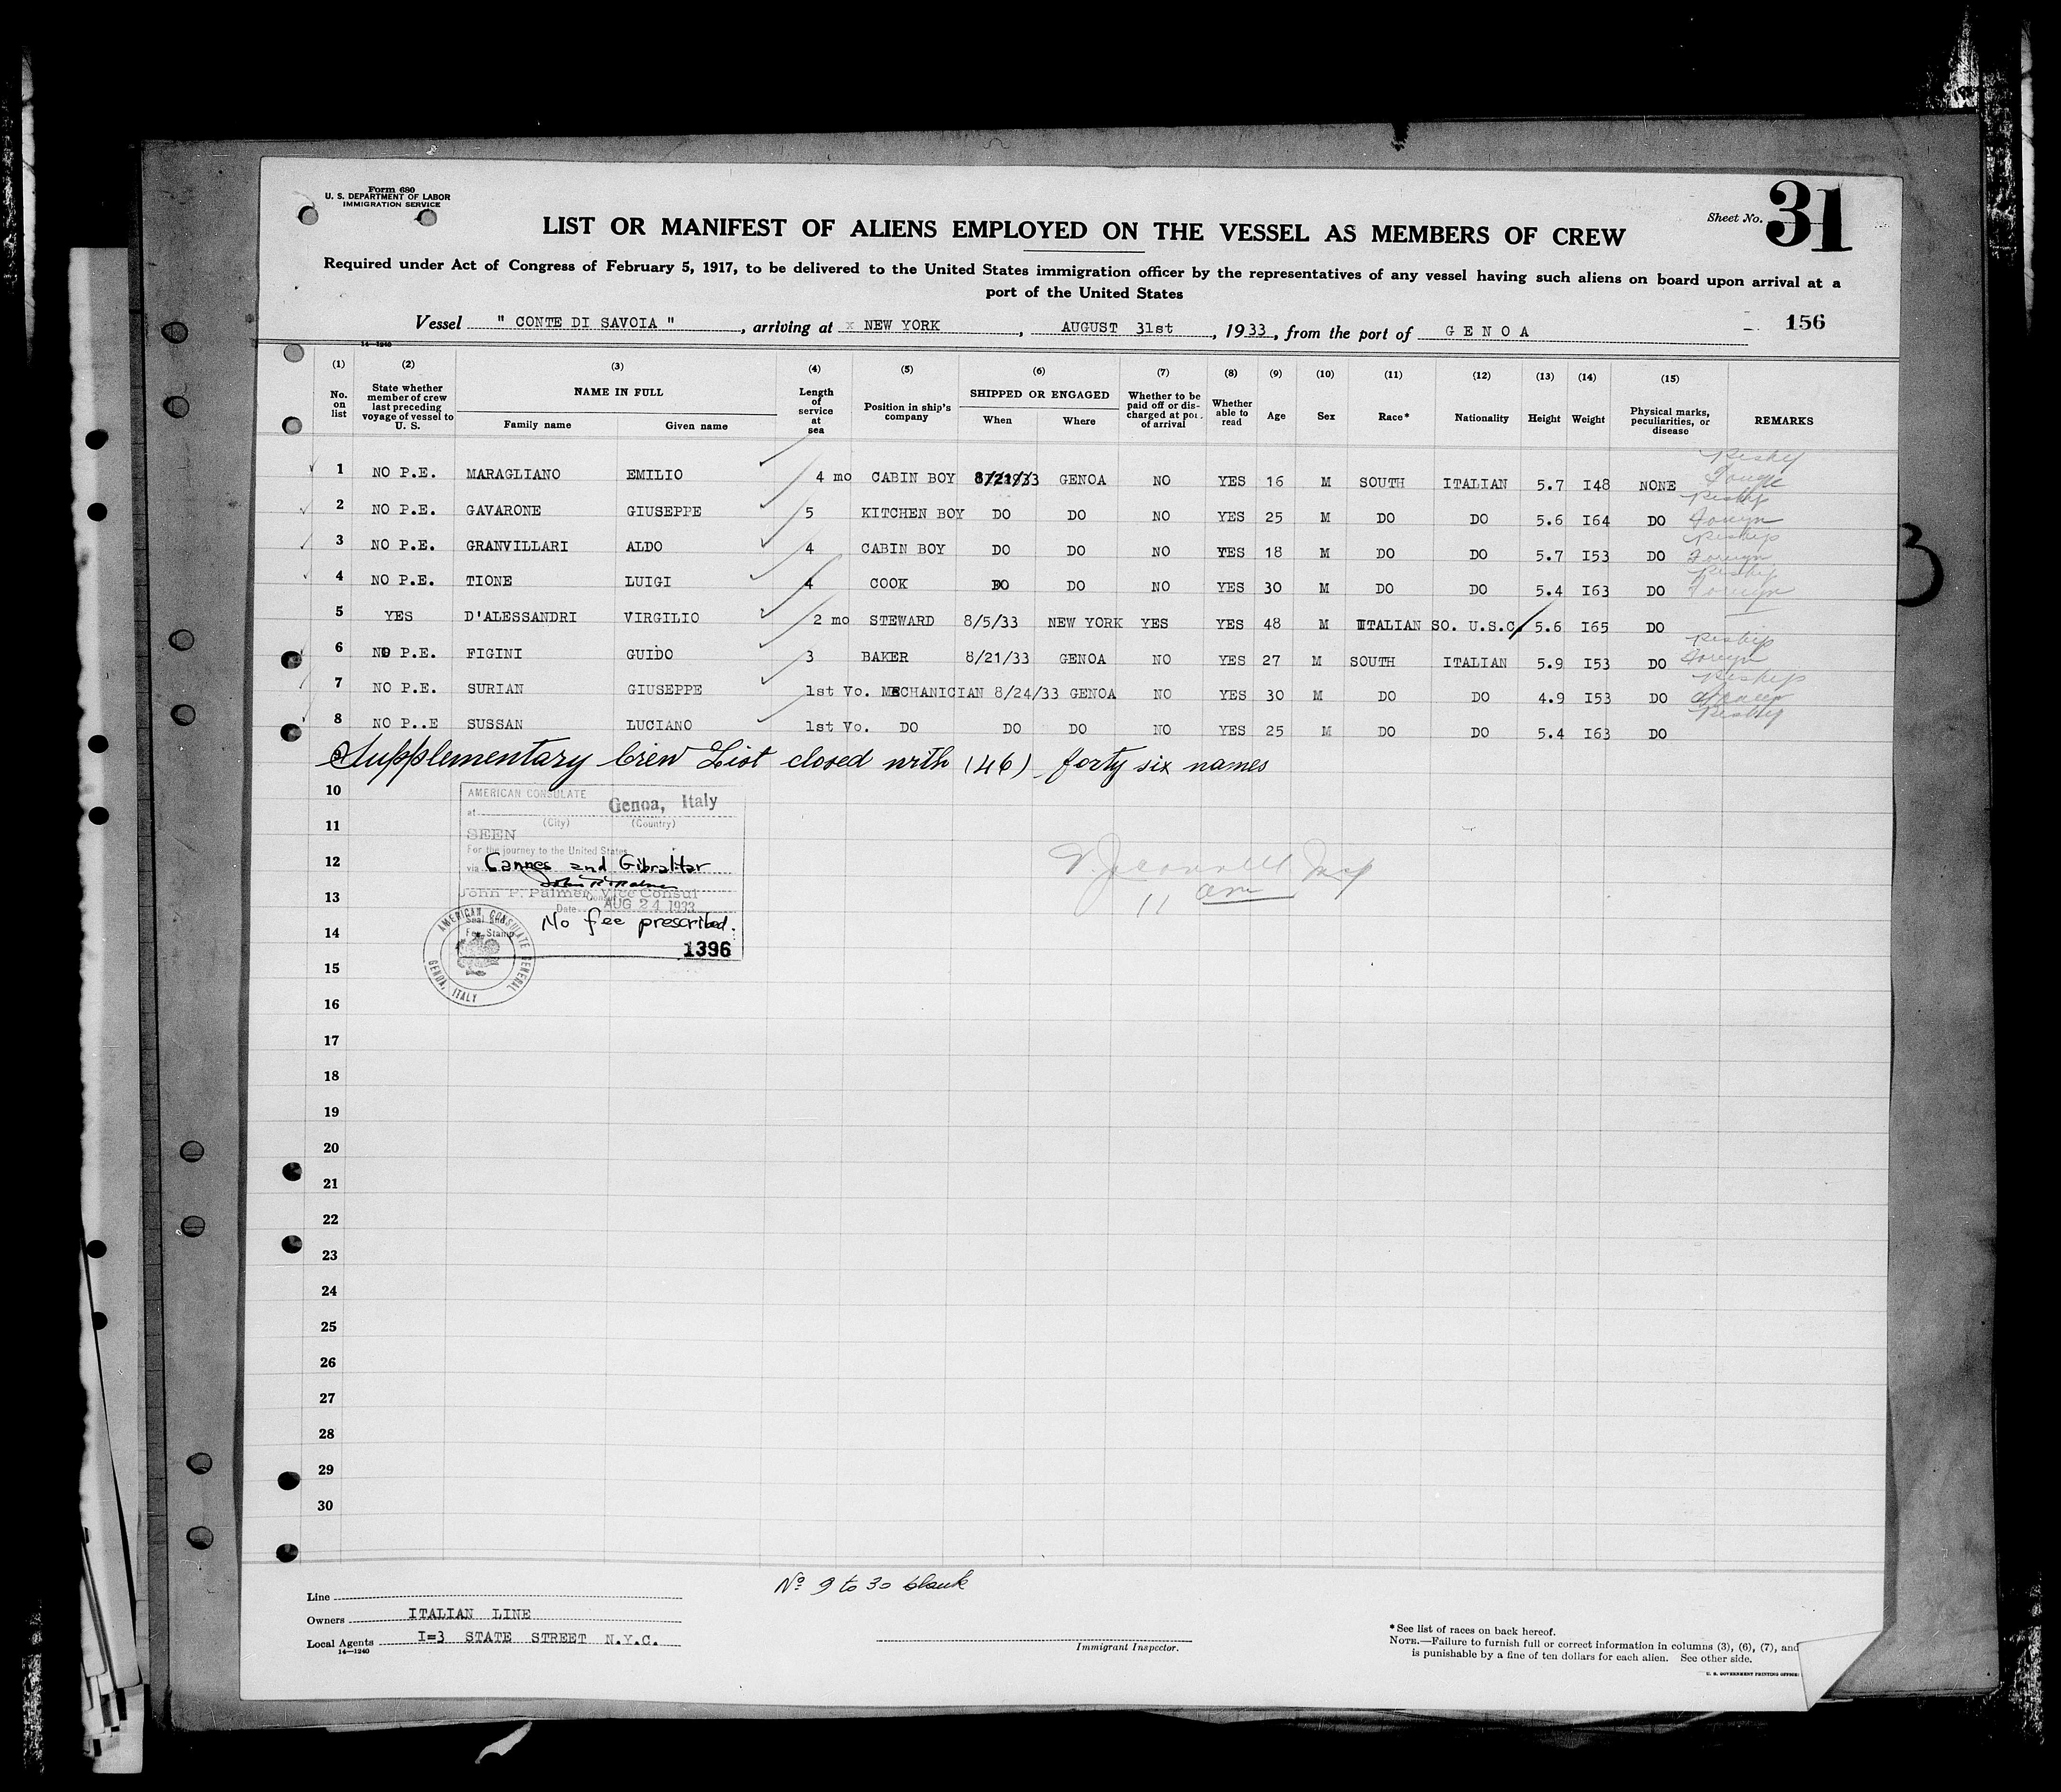 Form 680
U. S. DEPARTMENT OF LABOR
IMMIGRATION SERVICE
Sheet No. 31
LIST OR MANIFEST OF ALIENS EMPLOYED ON THE VESSEL AS MEMBERS OF CREW
Required under Act of Congress of February 5, 1917, to be delivered to the United States immigration officer by the representatives of any vessel having such aliens on board upon arrival at a
port of the United States
Vessel " CONTE DI SAVOIA ", arriving at NEW YORK, AUGUST 31st, 1933, from the port of GENOA 156
14—1240
(1) (2) (3) (4) (5) (6) (7) (8) (9) (10) (11) (12) (13) (14) (15)
No. on list State whether member of crew last preceding voyage of vessel to U. S. NAME IN FULL Family name Given name Length of service at sea Position in ship's company SHIPPED OR ENGAGED When Where Whether to be paid off or discharged at port of arrival Whether able to read Age Sex Race* Nationality Height Weight Physical marks, peculiarities, or disease REMARKS
1 NO P.E. MARAGLIANO EMILIO 4 mo CABIN BOY 8/21/33 GENOA NO YES 16 M SOUTH ITALIAN 5.7 I48 NONE
2 NO P.E. GAVARONE GIUSEPPE 5 KITCHEN BOY DO DO NO YES 25 M DO DO 5.6 I64 DO
3 NO P.E. GRANVILLARI ALDO 4 CABIN BOY DO DO NO YES 18 M DO DO 5.7 I53 DO
4 NO P.E. TIONE LUIGI 4 COOK DO DO NO YES 30 M DO DO 5.4 I63 DO
5 YES D'ALESSANDRI VIRGILIO 2 mo STEWARD 8/5/33 NEW YORK YES YES 48 M ITALIAN SO. U.S.C. 5.6 I65 DO
6 NO P.E. FIGINI GUIDO 3 BAKER 8/21/33 GENOA NO YES 27 M SOUTH ITALIAN 5.9 I53 DO
7 NO P.E. SURIAN GIUSEPPE 1st Vo. MECHANICIAN 8/24/33 GENOA NO YES 30 M DO DO 4.9 I53 DO
8 NO P..E SUSSAN LUCIANO 1st Vo. DO DO DO NO YES 25 M DO DO 5.4 I63 DO
9 Supplementary Crew List closed with (46) forty six names
10
AMERICAN CONSULATE
at Genoa, Italy
(City) (Country)
11
SEEN
For the journey to the United States
12
via Cannes and Gibraltar
13
John P. Palmer, Vice Consul
Date AUG 24 1933
No fee prescribed.
Seal and Fee Stamp
14
1396
AMERICAN CONSULATE GENERAL
GENOA, ITALY
11 am
15
16
17
18
19
20
21
22
23
24
25
26
27
28
29
30
No 9 to 30 blank
Line
Owners ITALIAN LINE
Local Agents I=3 STATE STREET N.Y.C.
14—1240
Immigrant Inspector.
*See list of races on back hereof.
NOTE.—Failure to furnish full or correct information in columns (3), (6), (7), and
is punishable by a fine of ten dollars for each alien. See other side.
U. S. GOVERNMENT PRINTING OFFICE
3